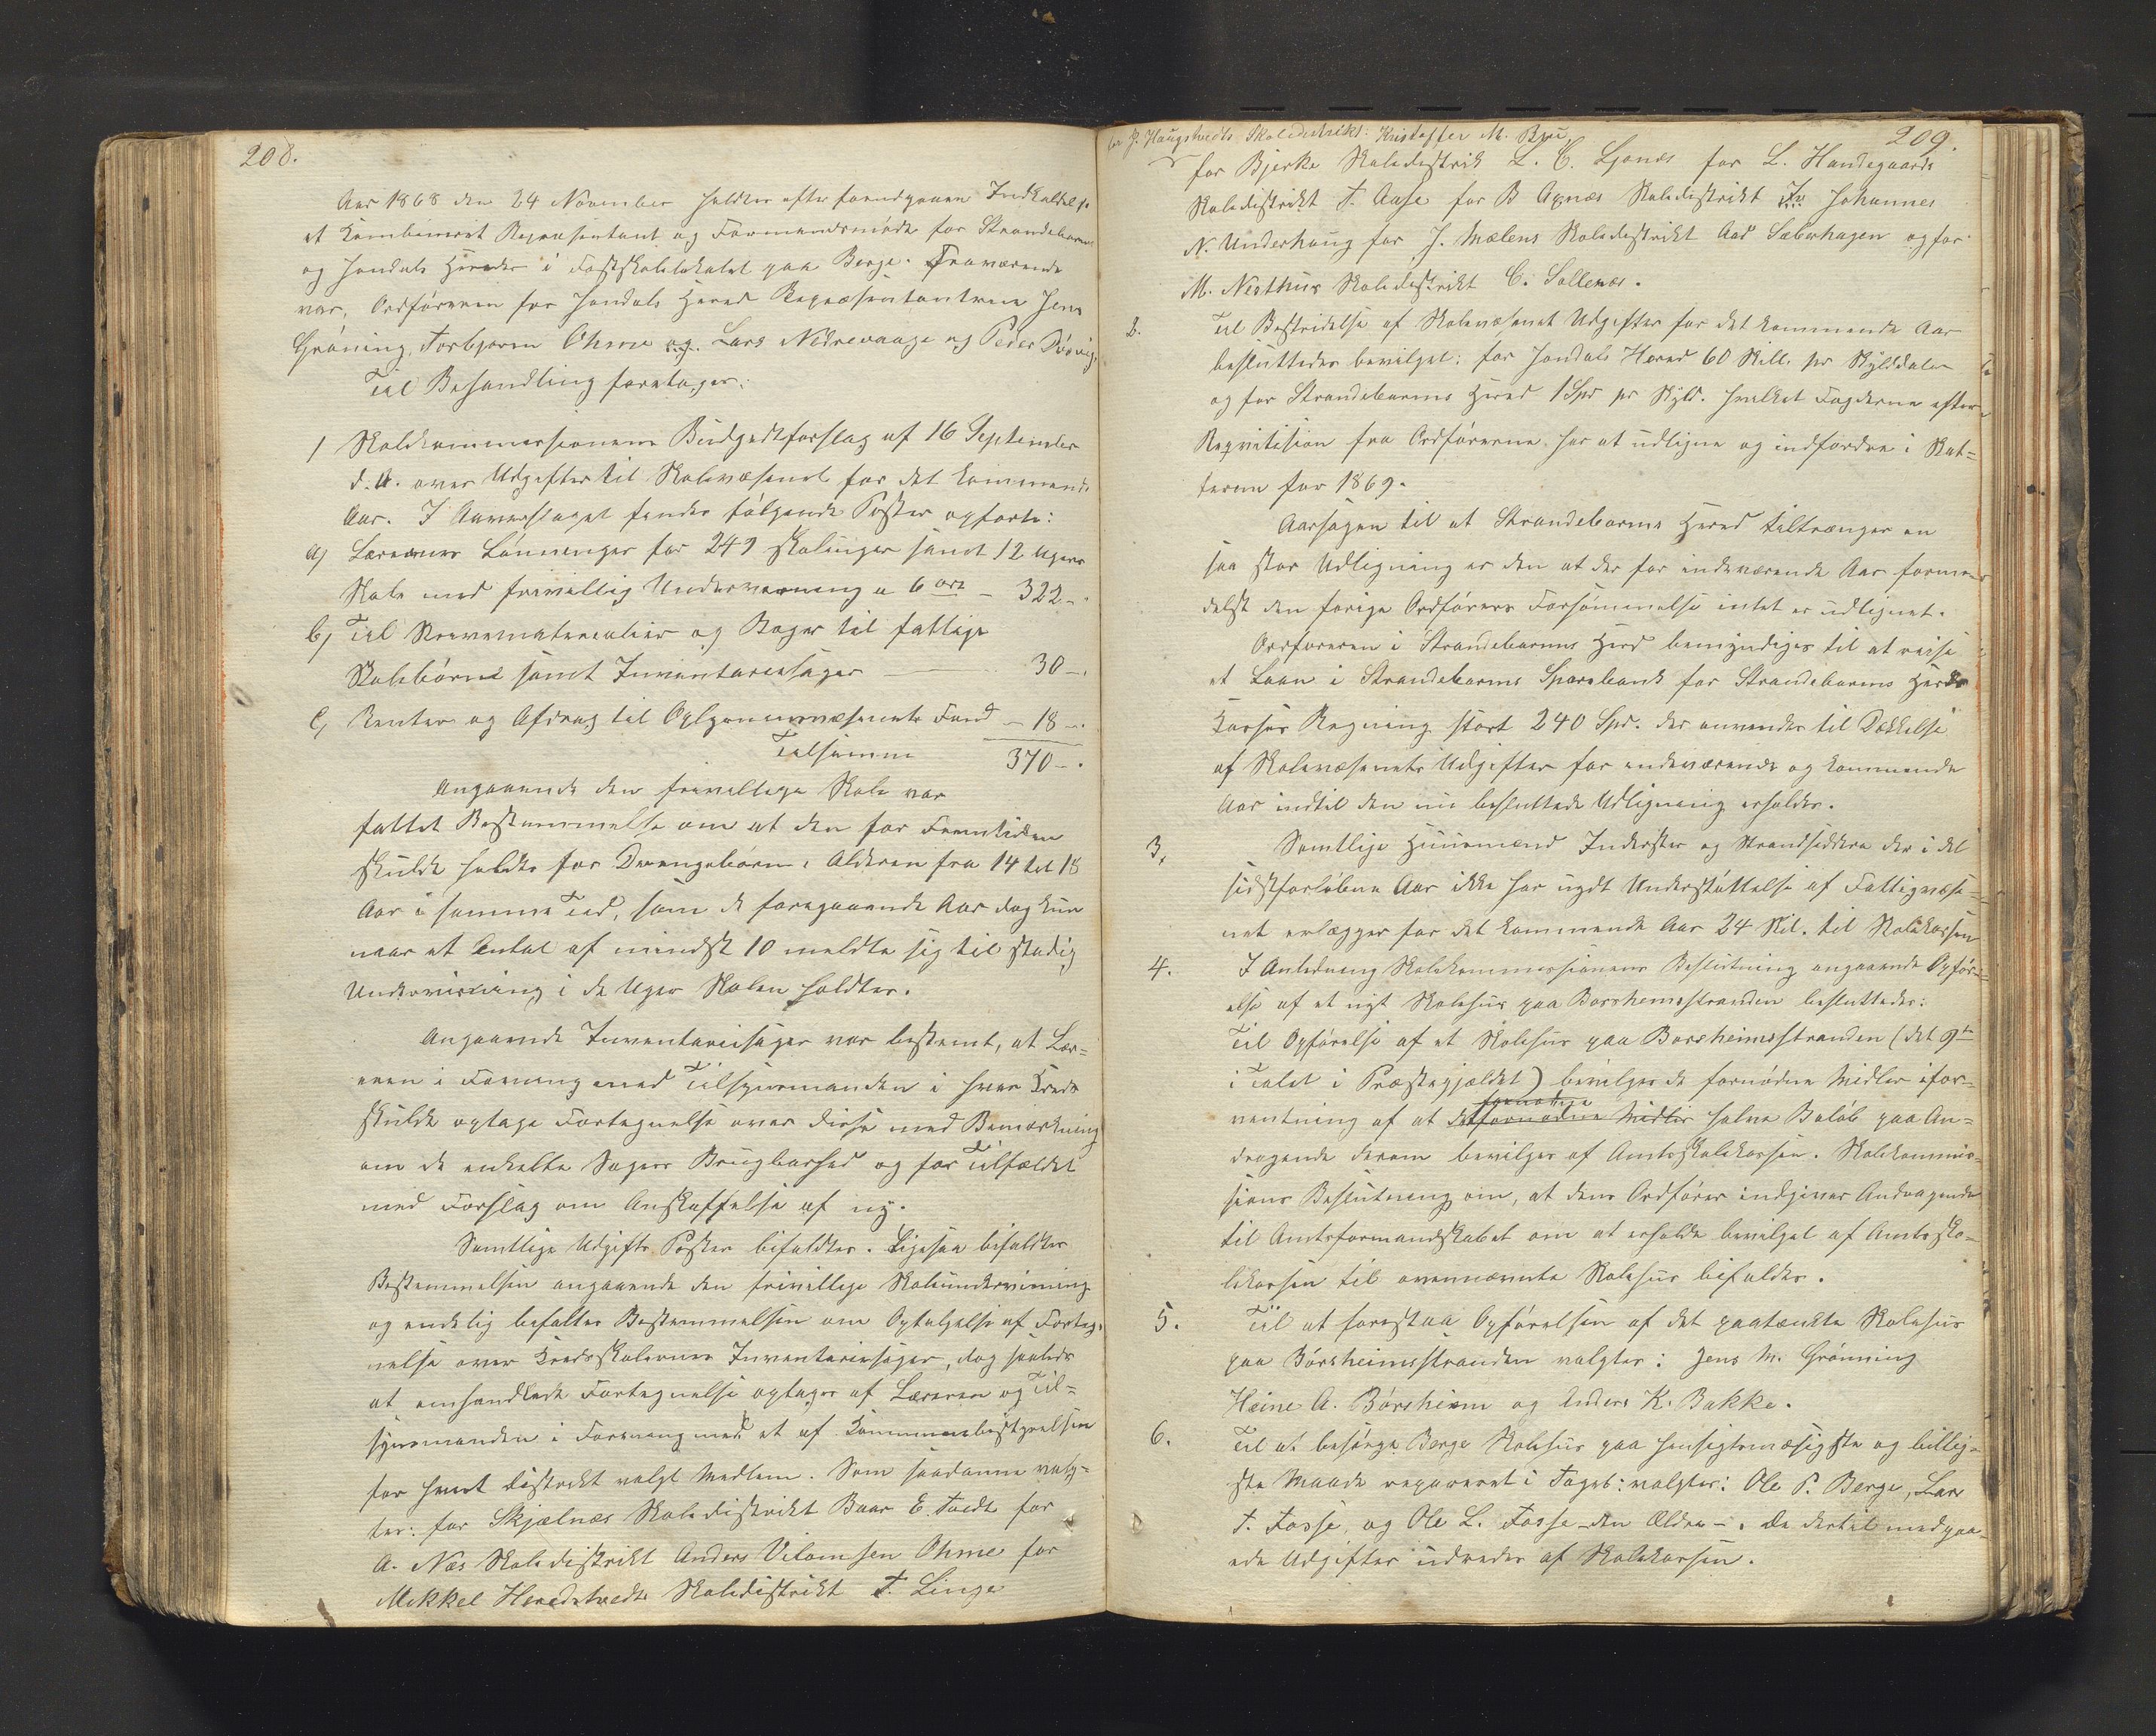 208.
Aar 1868 den 24 November holdtes efter foregaaende Indkaldelse
et Kombineret Repræsentant og Formandsmøde for Strandebarms
og Jondals Herreder i Fastskolelokalet paa Berge. Fraværende
var, Ordføreren for Jondals Herred Repræsentanterne Jens
Grøning, Torbjørn Ohme og Lars Nedrevaage og Peder
Til Behandling foretoges:
1 Skolekommissionens Budgedtforslag af 16 September
d. A. over Udgifter til Skolevæsenet for det kommende
Aar. I Overslaget fandtes følgende Poster opførte:
a) Lærernes Lønninger for 249 skoleuger samt 12 Ugers
Skole med frivillig Undervisning a 6 ort – 322 –
b) Til Skrivematerialier og Bøger til fattige
Skolebørn samt Inventariesager – 30 –
c) Renter og Afdrag til Oplysningsvæsenets Fond – 18 –
Tilsammen 370 –
Angaaende den frivillige Skole var
fattet Bestemmelse om at den for Fremtiden
skulde holdes for Drengebørn i Alderen fra 14 til 18
Aar i samme Tid, som de foregaaende Aar dog kun
naar et Antal af mindst 10 meldte sig til stadig
Undervisning i de Uger Skolen holdtes.
Angaaende Inventariesager var bestemt, at Lær-
eren i Forening med Tilsynsmanden i hver Kreds
skulde optage Fortegnelse over disse med Bemærkning
om de enkelte Sagers Brugbarhed og for Tilfældet
med Forslag om Anskaffelse af ny.
Samtlige Udgifts Poster bifaldtes. Ligesaa bifaldtes
Bestemmelsen angaaende den frivillige Skoleundervisning
og endelig bifaltes Bestemmelsen om Optagelse af Forteg-
nelse over Kredsskolernes Inventariesager, dog saaledes
at omhandlede Fortegnelse optages af Læreren og Til-
synsmanden i Forening med et af Kommunebestyrelsen
for hvert distrikt valgt Medlem. Som saadanne valg-
tes: for Skjælnæs Skoledistrikt Baar E. Tvedt for
A. Næs Skoledistrikt Anders Vilomsen Ohme for
Mikkel Heradstvedts Skoledistrikt T. Linge
209.
for J. Haugstvedts Skoledistrikt: Kristoffer M. Bru
for Bjerke Skoledistrik L. C. Ljonæs for L. Handegaards
Skoledistrikt T. Aase for B Axnæs Skoledistrikt Johannes
N. Underhaug for J. Mælens Skoledistrikt Aad Sæberhagen og for
M. Nerthus Skoledistrikt C. Sollenæs.
2. Til Bestridelse af Skolevæsenet Udgifter for det kommende Aar
besluttedes bevilget: for Jondals Hered 60 Skill. pr Skylddaler
og for Strandebarms Hered 1 Spd pr Skyld. hvilket Fogderne efter
Reqvisition fra Ordførerne har at udligne og indfordre i Skat-
terne for 1869.
Aarsagen til at Strandebarms Hered tiltrænger en
saa stor Udligning er den at der for indeværende Aar forme-
delst den forige Ordførers Forsømmelse intet er udlignet.
Ordføreren i Strandebarms Hered bemyndiges til at reise
et Laan i Strandebarms Sparebank for Strandebarms Hereds
Kasses Regning stort 240 Spd. der anvendes til Dækkelse
af Skolevæsenets Udgifter for indeværende og kommende
Aar indtil den nu besluttede Udligning erholdes.
3, Samtlige Huusmænd Inderster og Strandsiddere der i det
sidstforløbne Aar ikke har nydt Understøttelse af Fattigvæse-
net erlægger for det kommende Aar 24 Skil. til Skolekassen
4. I Anledning Skolekommissionens Beslutning angaaende Opfør-
else af et nyt Skolehus paa Borsheimsstranden besluttedes:
Til Opførelse af et Skolehus paa Borsheimsstranden (det 9de
i Talet i Præstegjældet) bevilges de fornødne Midler i for-
ventning af at det fornødne Midler halve Beløb paa An-
dragende derom bevilges af Amtsskolekassen. Skolekommis-
sions Beslutning om, at dens Ordfører indgiver Andragende
til Amtsformandskabet om at erholde bevilget af Amtssko-
lekassen til ovennævnte Skolehus bifaldes.
5. Til at forestaa Opførelsen af det paatænkte Skolehus
paa Børsheimsstranden valgtes: Jens M. Grønning
Heine A. Børsheim og Anders K. Bakke.
6. Til at besørge Berge Skolehus paa hensigtsmæsigste og billig-
ste Maade repareret i Taget: valgtes: Ole P. Berge, Lars
T. Fosse, og Ole L. Fosse – den Ældre –. De dertil medgaa-
ede Udgifter udredes af Skolekassen.